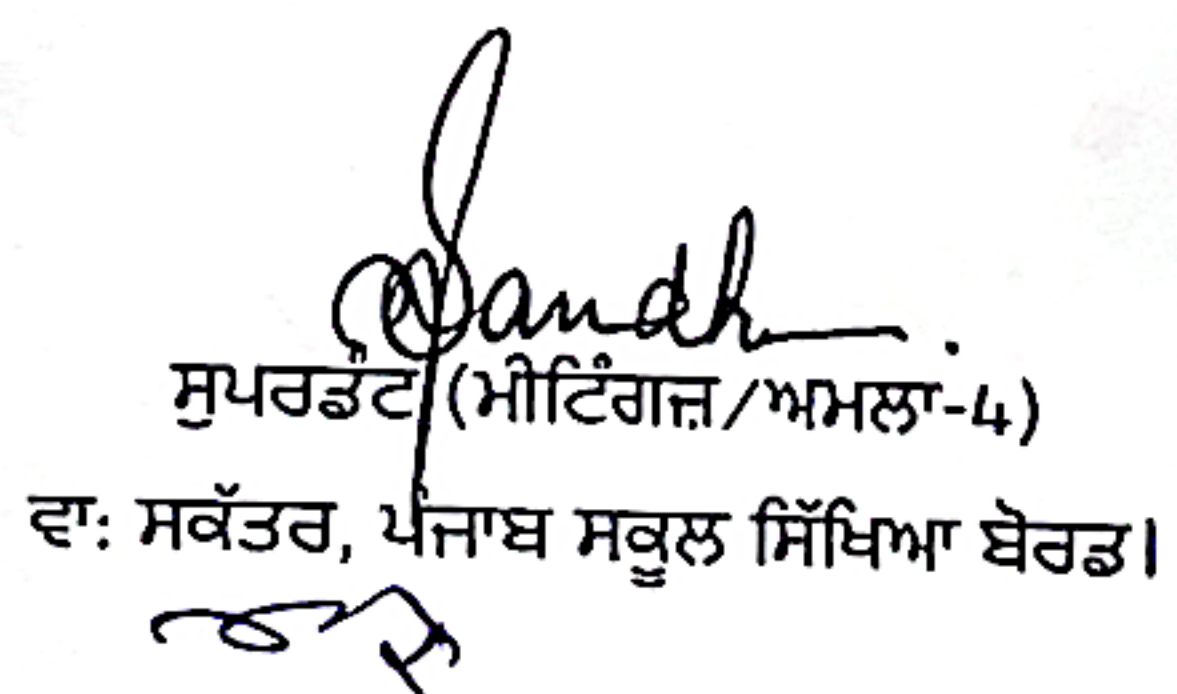 ਸੁਪਰਡੰਟ (ਮੀਟਿੰਗਜ਼/ਅਮਲਾ-4)
ਵਾ: ਸਕੱਤਰ, ਪੰਜਾਬ ਸਕੂਲ ਸਿੱਖਿਆ ਬੋਰਡ।